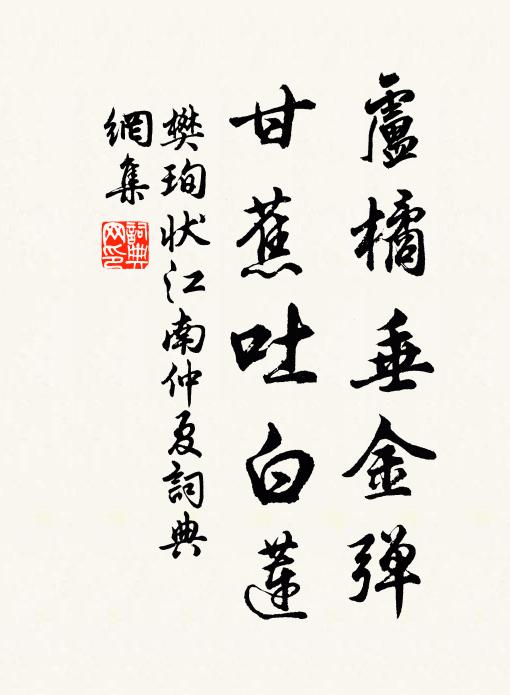 盧橘垂金弹
甘蕉吐白蓮
樊珣狀江南仲夏詞典
網集
詞典网印